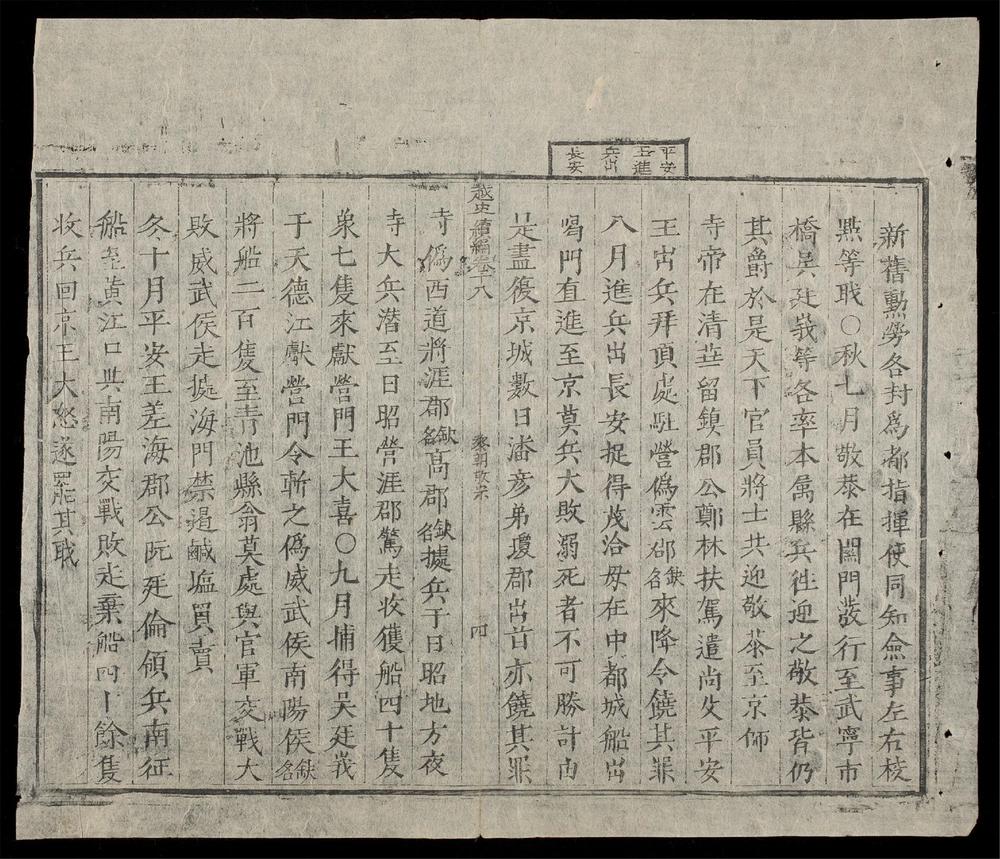 平安
王進
兵出
長安
新舊勲勞各封爲都指揮使同知僉事左右校
㸃等戢〇秋七月敬恭在闗門蕟行至武寧市
橋吳廷峩等各率本属縣兵徃迎之敬恭皆仍
其爵於是天下官員將士共迎敬恭至京師
寺帝在清華留鎮郡公鄭林扶駕遣尚父平安
王出兵拜頂處駐營偽雲郡缺名來降令饒其罪
八月進兵出長安捉得茂洽母在中都城船出
喝門直進至京莫兵大敗溺死者不可勝計由
是盡復京城數日潘彦弟瓊郡出首亦饒其罪
越史續編卷八
黎朝敬宗
四
寺偽西道將涯郡缺名高郡缺名據兵于日昭地方夜
寺大兵潜至日昭營涯郡驚走收獲船四十隻
象七隻來獻營門王大喜〇九月捕得吴廷峩
于天德江獻營門令斬之偽威武侯南陽侯缺名
將船二百隻至青池縣翁莫處與官軍交戰大
敗威武侯走據海門禁遏鹹塩買賣
冬十月平安王差海郡公阮廷倫領兵南征
船至黄江口與南陽交戰敗走棄船四十餘隻
收兵回京王大怒遂罷其戢